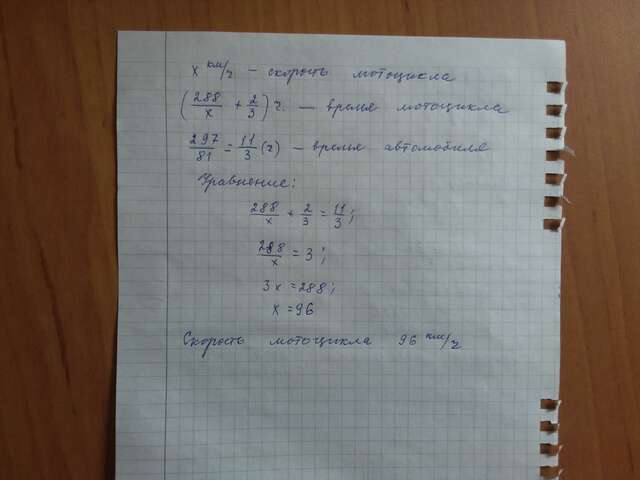 x км/ч – скорость мотоцикла
(288/x + 2/3) ч. – время мотоцикла
297/81 = 11/3 (ч) – время автомобиля
Уравнение:
288/x + 2/3 = 11/3;
288/x = 3;
3x = 288;
x = 96
Скорость мотоцикла 96 км/ч